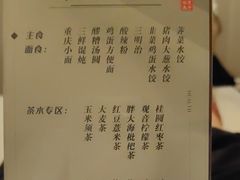 主食
面食:
重庆小面
三鲜馄饨
醪糟汤圆
鸡蛋方便面
酸辣粉
三明治
韭菜鸡蛋水饺
猪肉大葱水饺
荠菜水饺
茶水专区:
玉米须茶
大麦茶
红豆薏米茶
胖大海枇杷茶
观音柠檬茶
桂圆红枣茶